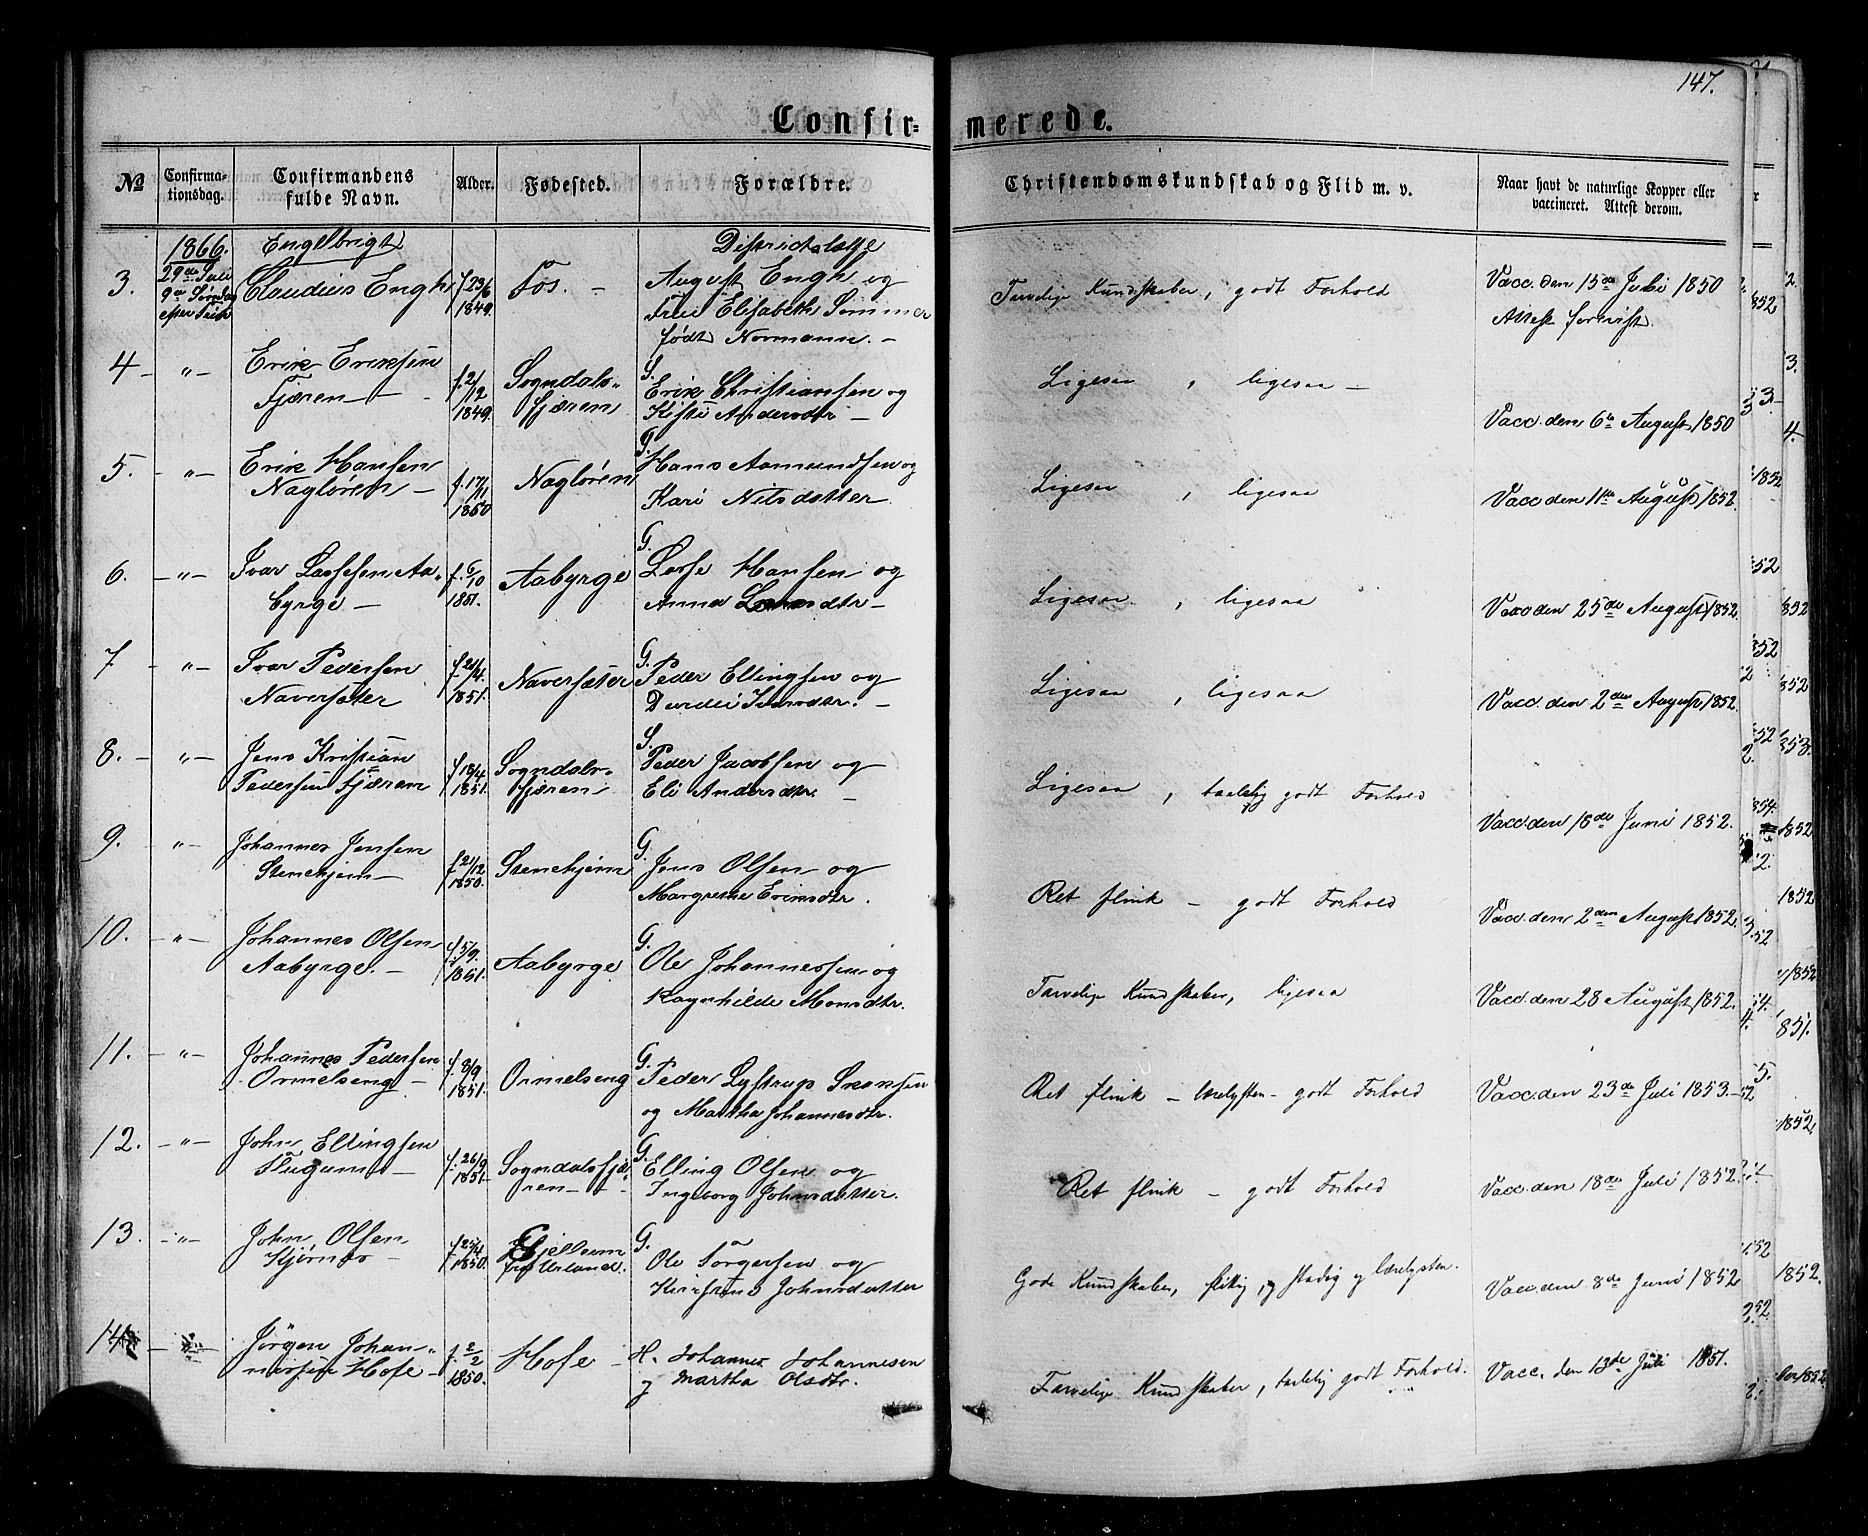 147.
Confirmerede.
№
Confirmationsdag.
Confirmandens fulde Navn.
Alder.
Fødested.
Forældre.
Christendomskundskab og Flid m. v.
Naar havt de naturlige Kopper eller vaccineret. Attest derom.
1866. Engelbrigt Districtslæge
3. 29de Juli Claudius Engh f 23/6 Fos. - August Engh og
9de Søndag efter Trin 1849. Frue Elisabeth Sommer
født Normann. -
Tarvelige Kundskaber, godt Forhold
Vacc. den 15de Juli 1850
Attest forevist.
4 - " - Erik Eriksen f. 2/12 Sogndals- S. Erik Christiansen og
Fjæren - 1849. fjæren Andersdtr -
Ligesaa, ligesaa -
Vacc. den 6te August 1850
5. - " - Erik Hansen f. 17/11 Nagløren G. Hans Aamundsen og
Nagløren - 1850 Kari Nilsdatter.
Ligesaa, ligesaa
Vacc den 11te August 1852.
6. - " - Ivar Lassesen Aa- f. 6/10 Aabyrge G. Lasse Hansen og
byrge - 1851. Anna dtr -
Ligesaa, ligesaa
Vacc den 25de August 1852.
7 - " - Ivar Pedersen f. 21/4. Naversæter G. Peder Ellingsen og
Naversæter 1851. Durdei Iversdtr. -
Ligesaa, ligesaa
Vacc. den 2den August 1852.
8. - " - Jens Kristian f 18/4 Sogndals- S. Peder Jacobsen og
Pedersen Fjæren 1851. fjæren Eli Andersdtr. -
Ligesaa, taalelig godt Forhold
Vacc. den 18de Juni 1852.
9. - " - Johannes Jensen f. 21/12 Stenehjem G. Jens Olsen og
Stenehjem - 1850. Margrethe Eriksdtr.
Ret flink - godt Forhold
Vacc. den 2den August 1852.
10. - " - Johannes Olsen f. 5/9. Aabyrge G. Ole Johannessen og
Aabyrge. - 1851. Ragnhilde Monsdtr.
Tarvelige Kundskaber, ligesaa
Vacc. den 28 August 1852.
11. - " - Johannes Pedersen f. 8/9 Ormelseng G. Peder Lystrup
Ormelseng - 1851. og Martha Johannesdtr.
Ret flink - Lærelysten - godt Forhold
Vacc. den 23de Juli 1853. -
12. - " - John Ellingsen f. 26/9 Sogndalsfjæ G. Elling Olsen og
- 1851. ren - Ingeborg Johnsdatter.
Ret flink - godt Forhold
Vacc den 18de Juli 1852.
13. - " - John Olsen f 25/4 Gjelleem G. Ole Torgersen og
Kjørnes - 1850. fra Urland. Kirstens Johnsdatter
Gode Kundskaber, flittig, og stadig og Lærelysten.
Vacc. den 8de Juni 1852
14 - " - Jörgen Johan- f. 2/2 Hofe - H. Johannes Johannesen
nessen Hofe - 1850. og Martha Olsdtr.
Tarvelige Kundskaber, taalelig godt Forhold.
Vacc. den 13de Juli 1851.